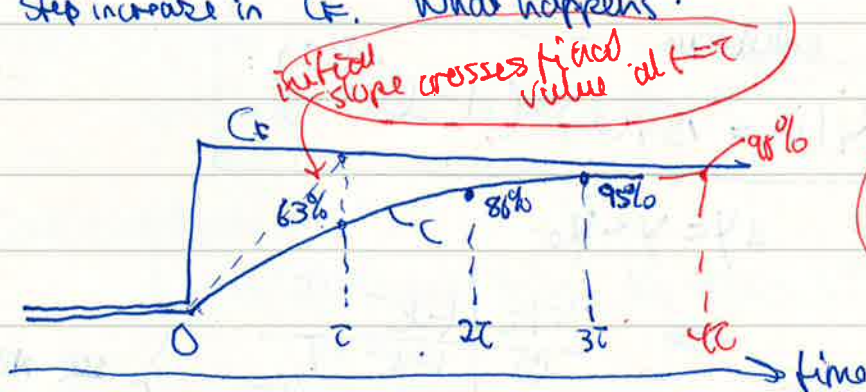 Step increase in CF. What happens?
initial
slope crosses final
value at t=τ
CF
98%
63%
C
86%
95%
0
τ
2τ
3τ
4τ
time